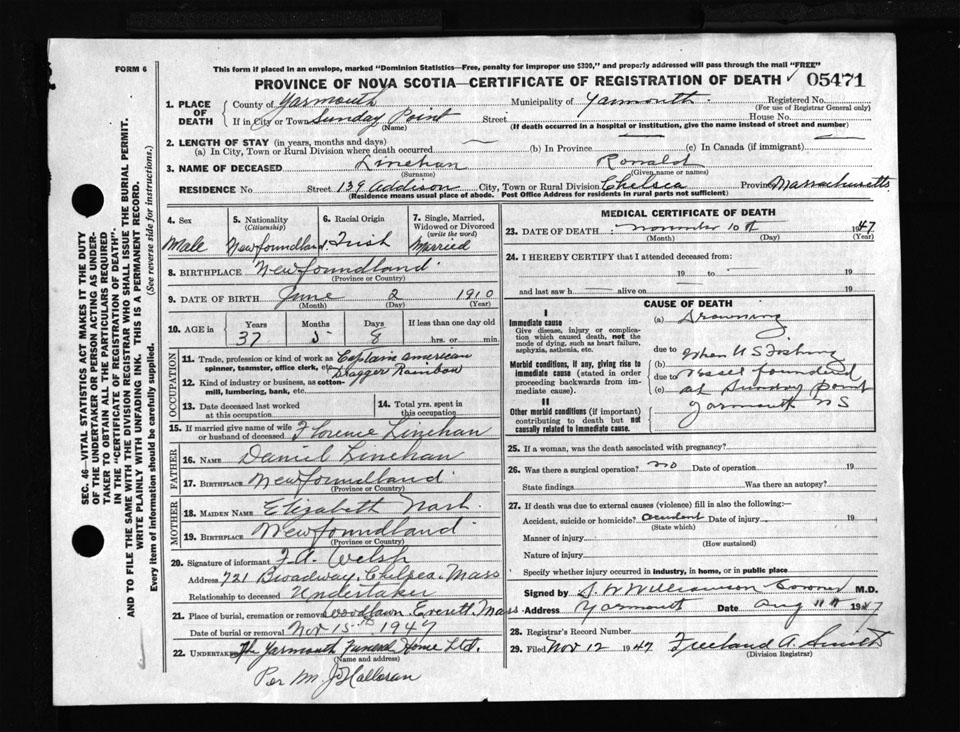 FORM 6
This form if placed in an envelope, marked "Dominion Statistics—Free, penalty for improper use $300," and properly addressed will pass through the mail "FREE"
PROVINCE OF NOVA SCOTIA—CERTIFICATE OF REGISTRATION OF DEATH ✓ 05471
1. PLACE OF DEATH { County of Yarmouth Municipality of Yarmouth. Registered No.
(For use of Registrar General only)
If in City or Town Sunday Point Street House No.
(Name) (If death occurred in a hospital or institution, give the name instead of street and number)
2. LENGTH OF STAY (in years, months and days)
(a) In City, Town or Rural Division where death occurred (b) In Province (c) In Canada (if immigrant)
3. NAME OF DECEASED Linehan Ronald
(Surname) (Given name or names)
RESIDENCE No Street 139 Addison City, Town or Rural Division Chelsea Province Massachusetts
(Residence means usual place of abode. Post Office Address for residents in rural parts not sufficient)
4. Sex Male
5. Nationality (Citizenship) Newfoundland
6. Racial Origin Irish
7. Single, Married, Widowed or Divorced (write the word) Married
8. BIRTHPLACE Newfoundland
(Province or Country)
9. DATE OF BIRTH June 2 1910
(Month) (Day) (Year)
10. AGE in { Years Months Days If less than one day old
37 5 8 hrs. or min.
OCCUPATION
11. Trade, profession or kind of work as spinner, teamster, office clerk, etc. Captain American
Dragger Rainbow
12. Kind of industry or business, as cotton-mill, lumbering, bank, etc.
13. Date deceased last worked at this occupation
14. Total yrs. spent in this occupation
15. If married give name of wife or husband of deceased Florence Linehan
FATHER
16. NAME Daniel Linehan
17. BIRTHPLACE Newfoundland
(Province or Country)
MOTHER
18. MAIDEN NAME Elizabeth Nash
19. BIRTHPLACE Newfoundland
(Province or Country)
20. Signature of informant F. A. Welsh
Address 721 Broadway, Chelsea, Mass
Relationship to deceased Undertaker
21. Place of burial, cremation or removal Woodlawn Everett Mass
Date of burial or removal Nov 15th 1947
22. UNDERTAKER The Yarmouth Funeral Home Ltd.
(Name and address)
Per M. J. Halloran
MEDICAL CERTIFICATE OF DEATH
23. DATE OF DEATH November 10th 1947
(Month) (Day) (Year)
24. I HEREBY CERTIFY that I attended deceased from
19 to 19
and last saw h alive on 19
CAUSE OF DEATH
I
Immediate cause (a) Drowning
Give disease, injury or complication which caused death, not the mode of dying, such as heart failure, asphyxia, asthenia, etc.
due to when U S Fishing
Morbid conditions, if any, giving rise to immediate cause (stated in order proceeding backwards from immediate cause).
(b) Vessel foundered
due to
(c) at Sunday Point
II
Yarmouth NS
Other morbid conditions (if important) contributing to death but not causally related to immediate cause.
25. If a woman, was the death associated with pregnancy?
26. Was there a surgical operation? no Date of operation 19
State findings Was there an autopsy?
27. If death was due to external causes (violence) fill in also the following:—
Accident, suicide or homicide? accident Date of injury 19
(State which)
Manner of injury
(How sustained)
Nature of injury
Specify whether injury occurred in industry, in home, or in public place
Signed by S. W. Williamson Coroner M.D.
Address Yarmouth Date Aug 11th 1947
28. Registrar's Record Number
29. Filed Nov 12 1947 Freeland A. Smith
(Division Registrar)
SEC. 46—VITAL STATISTICS ACT MAKES IT THE DUTY
OF THE UNDERTAKER OR PERSON ACTING AS UNDER-
TAKER TO OBTAIN ALL THE PARTICULARS REQUIRED
IN THE "CERTIFICATE OF REGISTRATION OF DEATH",
AND TO FILE THE SAME WITH THE DIVISION REGISTRAR WHO SHALL ISSUE THE BURIAL PERMIT.
WRITE PLAINLY WITH UNFADING INK. THIS IS A PERMANENT RECORD.
Every item of information should be carefully supplied. (See reverse side for instructions.)